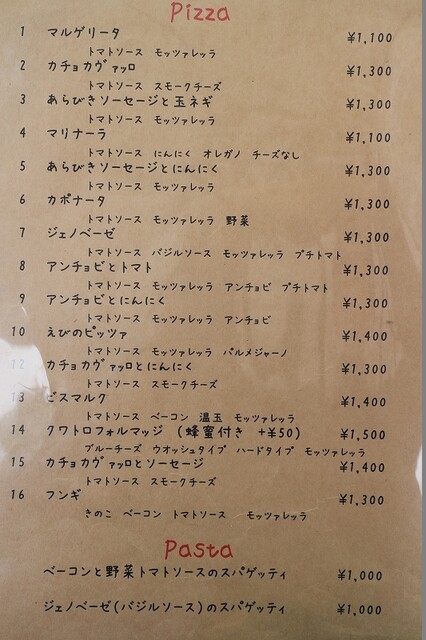 Pizza
1 マルゲリータ ¥1,100
トマトソース モッツァレッラ
2 カチョカヴァッロ ¥1,300
トマトソース スモークチーズ
3 あらびきソーセージと玉ネギ ¥1,300
トマトソース モッツァレッラ
4 マリナーラ ¥1,100
トマトソース にんにく オレガノ チーズなし
5 あらびきソーセージとにんにく ¥1,300
トマトソース モッツァレッラ
6 カポナータ ¥1,300
トマトソース モッツァレッラ 野菜
7 ジェノベーゼ ¥1,300
トマトソース バジルソース モッツァレッラ プチトマト
8 アンチョビとトマト ¥1,300
トマトソース モッツァレッラ アンチョビ プチトマト
9 アンチョビとにんにく ¥1,300
トマトソース モッツァレッラ アンチョビ
10 えびのピッツァ ¥1,400
トマトソース モッツァレッラ パルメジャーノ
12 カチョカヴァッロとにんにく ¥1,300
トマトソース スモークチーズ
13 ビスマルク ¥1,400
トマトソース ベーコン 温玉 モッツァレッラ
14 クワトロフォルマッジ (蜂蜜付き +¥50) ¥1,500
ブルーチーズ ウオッシュタイプ ハードタイプ モッツァレッラ
15 カチョカヴァッロとソーセージ ¥1,400
トマトソース スモークチーズ
16 フンギ ¥1,300
きのこ ベーコン トマトソース モッツァレッラ
Pasta
ベーコンと野菜トマトソースのスパゲッティ ¥1,000
ジェノベーゼ(バジルソース)のスパゲッティ ¥1,000